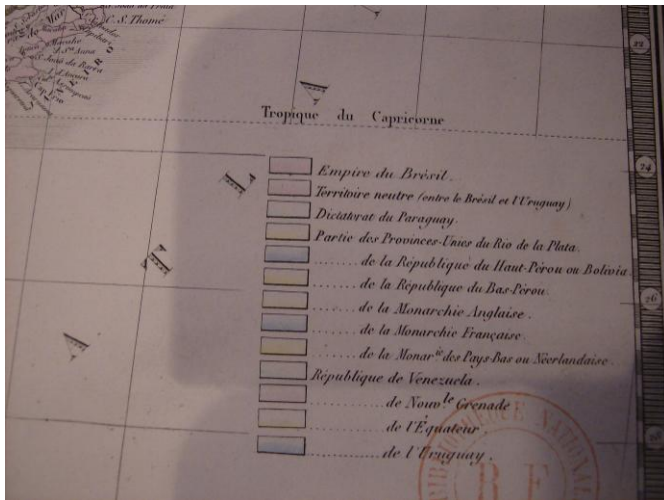 C. S. Thomé
Macahé
S. João da Barra
Tropique du Capricorne
Empire du Brésil.
Territoire neutre (entre le Brésil et l'Uruguay)
Dictatorat du Paraguay.
Partie des Provinces-Unies du Rio de la Plata.
........ de la République du Haut-Pérou ou Bolivia.
........ de la République du Bas-Pérou.
........ de la Monarchie Anglaise.
........ de la Monarchie Française.
........ de la Monar.ie des Pays-Bas ou Néerlandaise.
République de Venezuela.
........ de Nouv.le Grenade
........ de l'Équateur
........ de l'Uruguay.
24
26
NATIONAL
R F